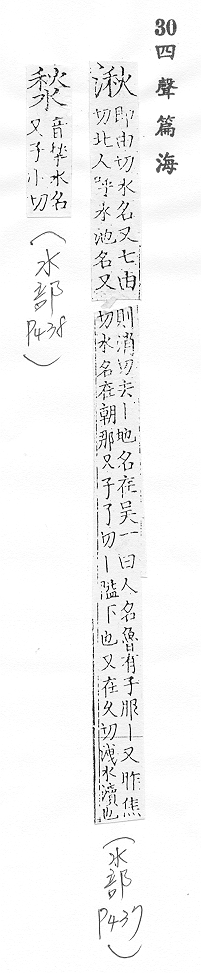 30 四聲篇海
湫
即由切水名又七由
切北人呼水池名又
則消切去丨地名在吳一曰人名魯有子服丨又昨焦
切水名在朝那又子了切丨隘下也又在久切淺水瀆也
(水部 P437)
音 水名
又子小切
(水部 P438)